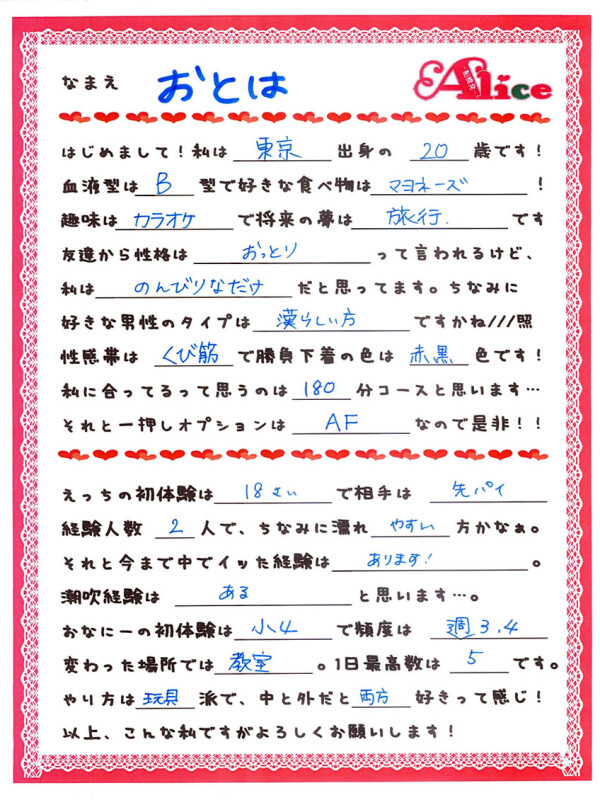 なまえ おとは
Alice
はじめまして!私は 東京 出身の 20 歳です!
血液型は B 型で好きな食べ物は マヨネーズ !
趣味は カラオケ で将来の夢は 旅行. です
友達から性格は おっとり って言われるけど、
私は のんびりなだけ だと思ってます。ちなみに
好きな男性のタイプは 漢らしい方 ですかね///照
性感帯は くび筋 で勝負下着の色は 赤黒 色です!
私に合ってるって思うのは 180 分コースと思います…
それと一押しオプションは AF なので是非!!
えっちの初体験は 18さい で相手は 先パイ
経験人数 2 人で、ちなみに濡れ やすい 方かなぁ。
それと今まで中でイッた経験は あります! 。
潮吹経験は ある と思います…。
やり方は 玩具 派で、中と外だと 両方 好きって感じ!
以上、こんな私ですがよろしくお願いします!